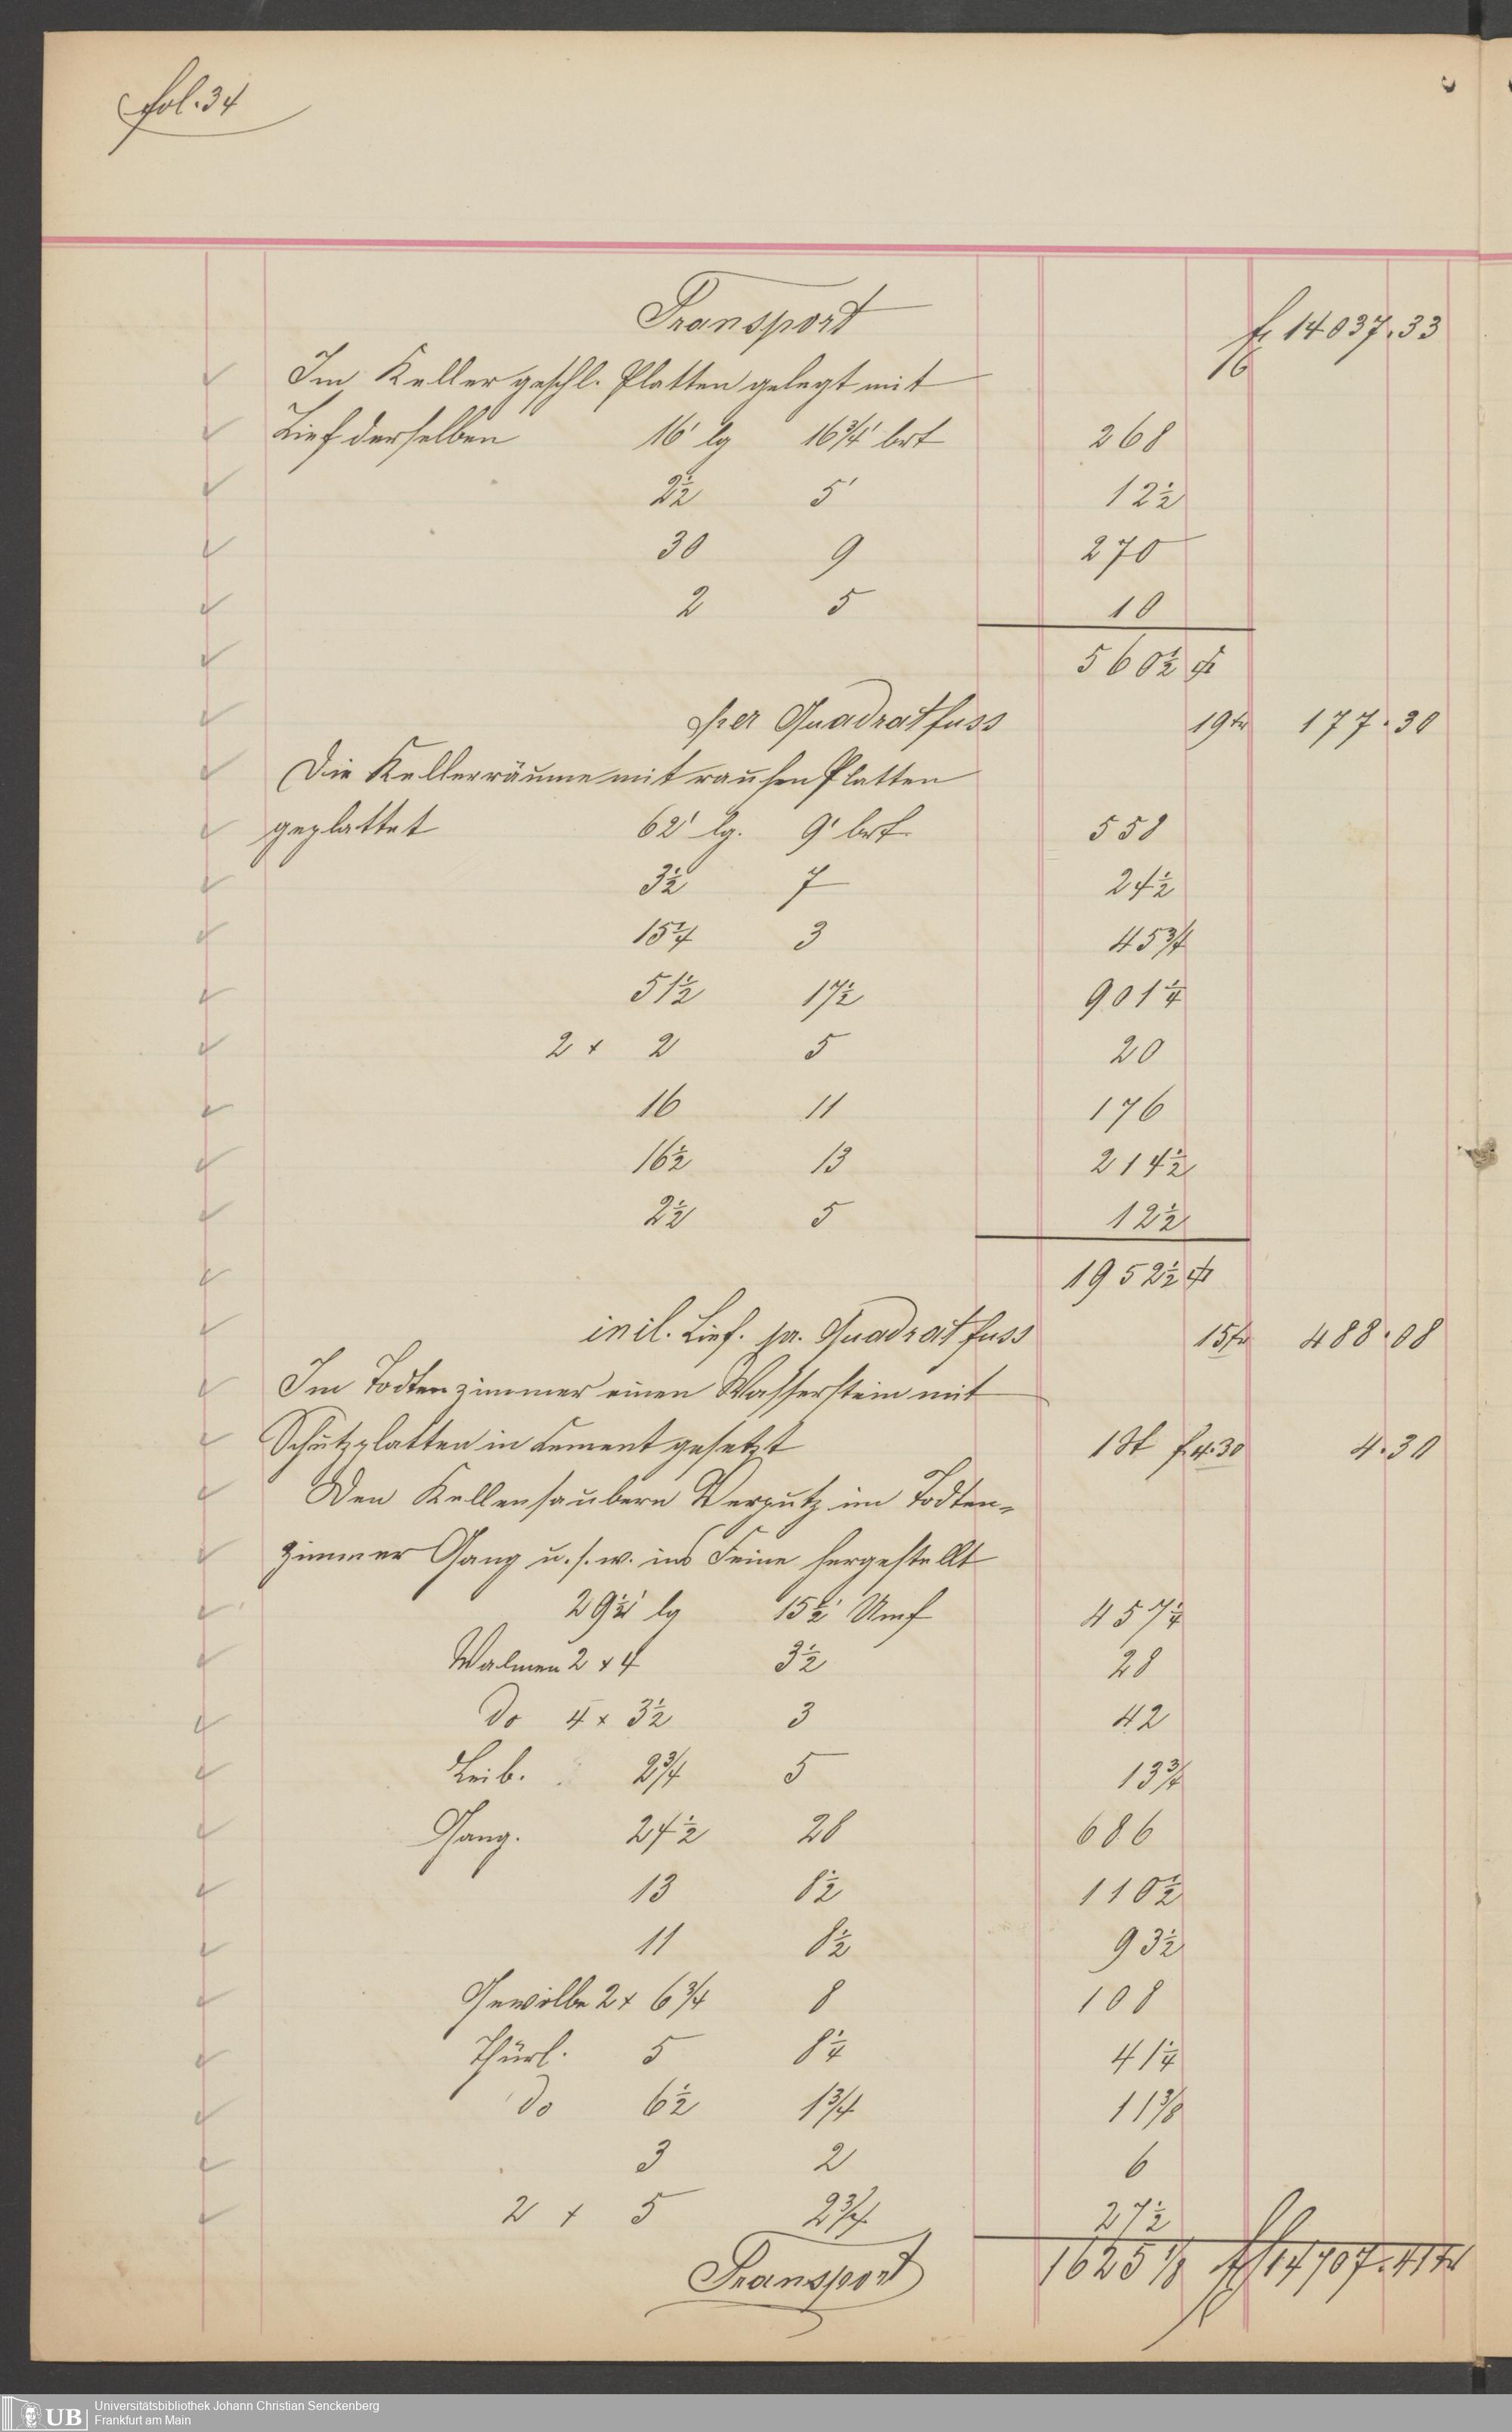 fol. 34
Transport f 14037.33
Im Keller geschl. Platten gelegt mit
Lief derselben 16' lg 16 3/4' brt 268
2 1/2 5' 12 1/2
30 9 270
2 5 10
560 1/2 □'
per Quadratfuss 19 kr 177.30
Die Kellerräume mit rauhen Platten
geplattet 62' lg. 9' brt. 558
3 1/2 7 24 1/2
15 1/4 3 45 3/4
51 1/2 17 1/2 901 1/4
2 x 2 5 20
16 11 176
16 1/2 13 214 1/2
2 1/2 5 12 1/2
1952 1/2 □'
incl. Lief. pr. Quadratfuss 15 kr 488.08
Im Todtenzimmer einen Wasserstein mit
Schutzplatten in Cement gesetzt 1 St f. 4.30 4.30
Den Kellensaubern Verputz im Todten-
zimmer Gang u. s. w. ins Feine hergestellt
29 1/2' lg 15 1/2' Umf 457 1/4
Walmen 2 x 4 3 1/2 28
do 4 x 3 1/2 3 42
Leib. 2 3/4 5 13 3/4
Gang. 24 1/2 28 686
13 8 1/2 110 1/2
11 8 1/2 93 1/2
Gewölbe 2 x 6 3/4 8 108
Thürl. 5 8 1/4 41 1/4
do 6 1/2 1 3/4 11 3/8
3 2 6
2 x 5 2 3/4 27 1/2
Transport 1625 1/8 f 14707.41 kr
Universitätsbibliothek Johann Christian Senckenberg
UB Frankfurt am Main